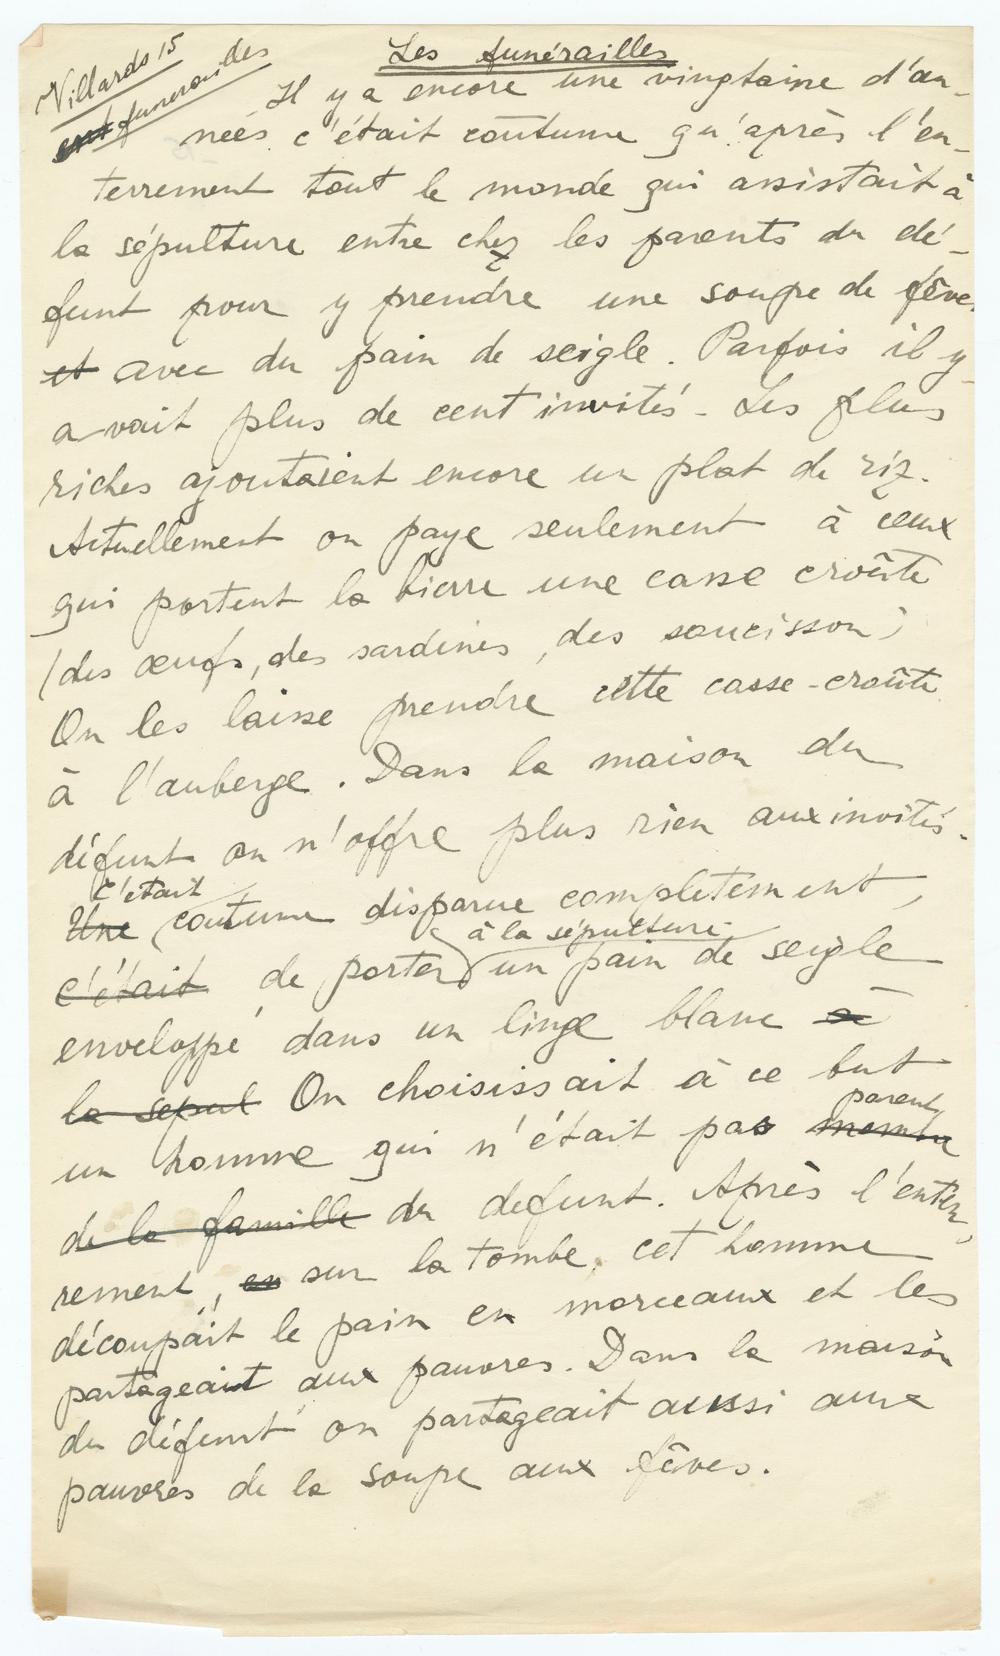 Villards 15
funerailles des
Les funérailles
Il y a encore une vingtaine d'an-
nées c'était coutume qu'après l'en-
terrement tout le monde qui assistait à
la sépulture entre chez les parents du dé-
funt pour y prendre une soupe de fêve
et avec du pain de seigle. Parfois il y
avait plus de cent invités - Les plus
riches ajoutaient encore un plat de riz.
Actuellement on paye seulement à ceux
qui portent la bierre une casse croûte
(des œufs, des sardines, des saucisson)
On les laisse prendre cette casse-croûte
à l'auberge. Dans la maison du
défunt on n'offre plus rien aux invités.
c'était
Une coutume disparue completement,
à la sépulture
c'était de porter un pain de seigle
enveloppé dans un linge blanc à
la sepul On choisissait à ce but
parent
un homme qui n'était pas membre
de la famille du defunt. Après l'enter-
rement, en sur la tombe, cet homme
découpait le pain en morceaux et les
partageait aux pauvres. Dans la maison
du défunt on partageait aussi aux
pauvres de la soupe aux fêves.